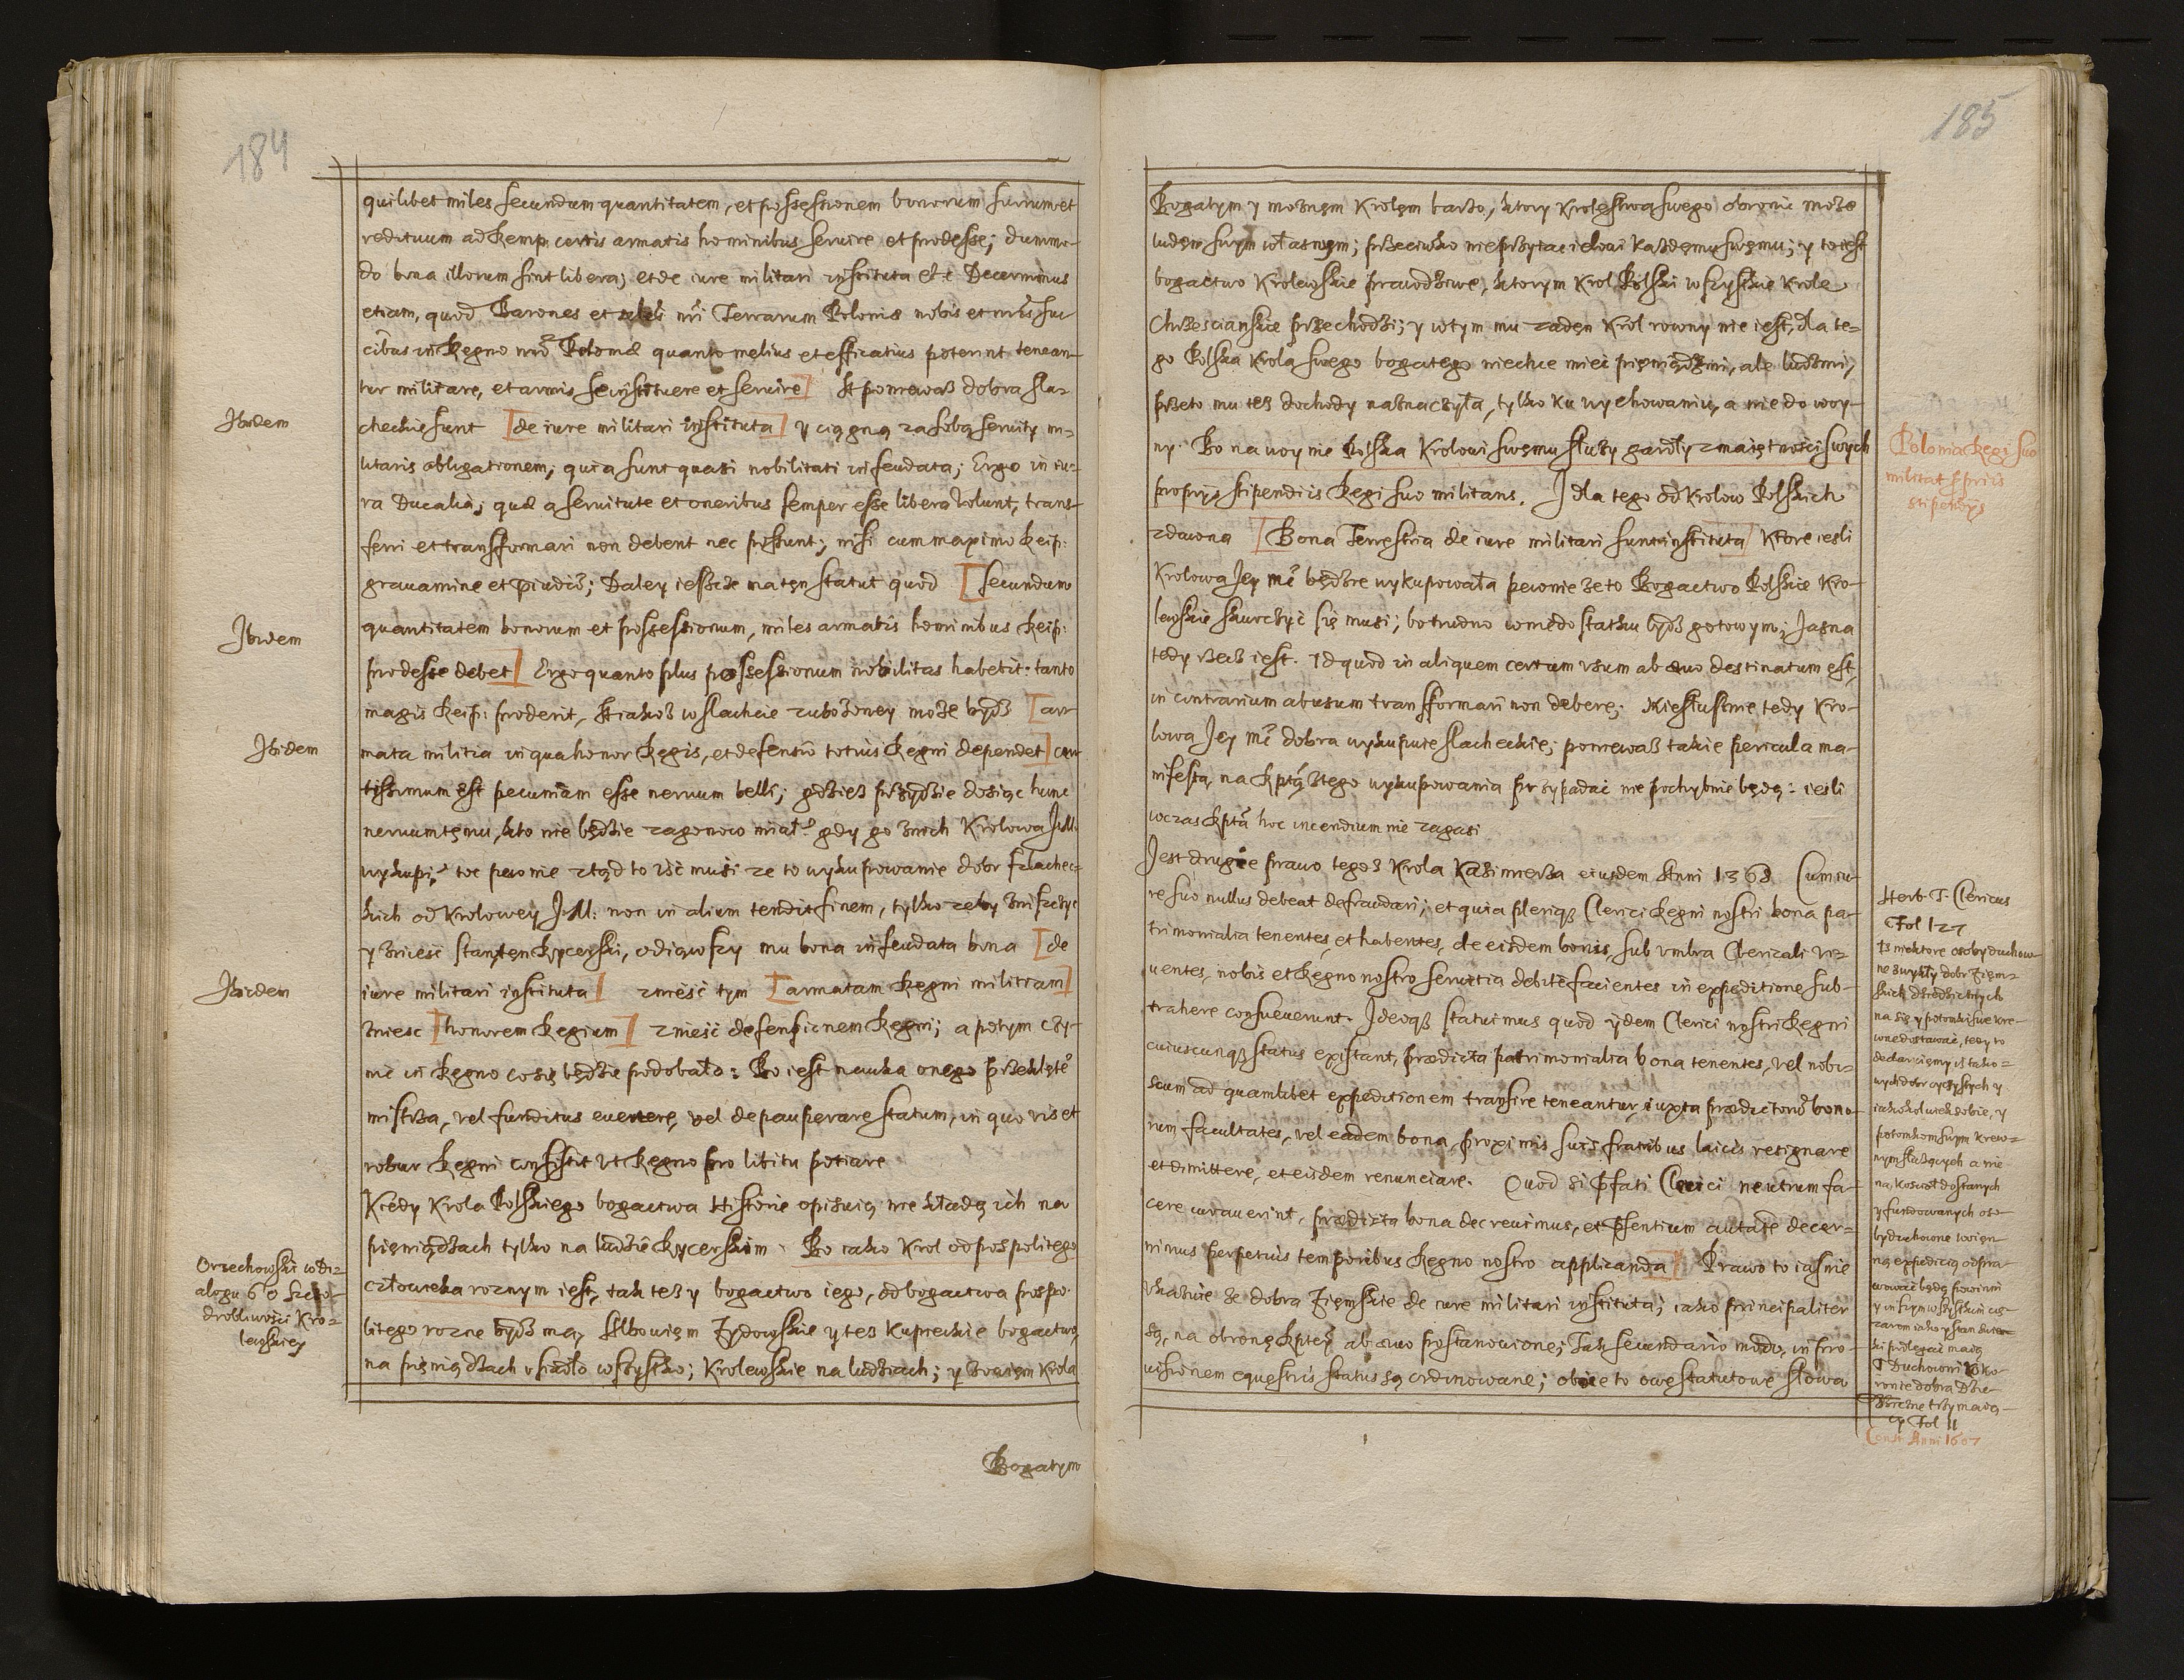 184
quilibet miles secundum quantitatem, et possessionem bonorum suorum et
redituum ad Remp. certis armatis hominibus servire et prodesse; dummo-
do bona illorum sint libera; et de iure militari instituta etc Decernimus
etiam, quod Barones et nobiles nri Terrarum Poloniæ nobis et nris suc
cibus in Regno nrō Poloniæ quanto melius et efficatius poterint tenean-
tur militare, et armis se instituere et servire] A poniewasz dobra sla-
Ibidem
checkie sunt [de iure militari instituta] y ciągną za sobą servity mi-
litaris obligationem, quia sunt quasi nobilitati infeudata; Ergo in iu-
ra Ducalia; quæ a servitute et oneribus semper esse libera volunt, trans-
ferri et transformari non debent nec possunt; nisi cum maximo Reip:
gravamine et piudiō; Daley ieszcze ma ten statut quod [secundum
Ibidem
quantitatem bonorum et possessionum, miles armatis hominibus Reip:
prodesse debet] Ergo quanto plus possessionum nobilitas habebit: tanto
magis Reip: proderit, A iakoż w slachcie zubożoney może bydź [ar-
Ibidem
mata militia in qua honor Regis, et defensio totius Regni dependet] cer
tissimum est pecuniam esse nervum belli; gdzież przydzie dosiąc hunc
nervum temu, kto nie będzie zagonow miał? gdy go z nich Krolowa JM.
wykupi? toc pewnie ztąd to iść musi ze to wykupowanie dobr szlachec-
kich od Krolowey JM: non in alium tendit finem, tylko zeby zniszczyc
y znieść stan ten Rycerski, odiąwszy mu bona infeudata bona [de
Ibidem
iure militari instituta] znieść tym [armatam Regni militiam]
zniesc [honorem Regium] znieść defensionem Regni; a potym czy-
nic in Regno co się będzie podobało: Bo iest nauka onego przeklęte°
mistrza, vel funditus evertere, vel depauperare statum, in quo vis et
robur Regni consistit ut Regno pro libitu potiare
Kiedy Krola Polskiego bogactwa Historie opisuią nie kładą ich na
pieniądzach tylko na ludzie Rycerskim. Bo iako Krol od pospolitego
Orzechowski w Di-
alogu 6 o Szczo-
drobliwości Kro-
lewskiey
człowieka roznym iest, tak tesz y bogactwo iego, od bogactwa pospo-
litego rozne bydź ma, Albowiem Zydowskie y tes Kupieckie bogactwo
na pieniądzach usiadło wszystko; Krolewskie na ludziach; y zowiem Krola
Bogatym
185
Bogatym y możnem Krolem barzo, ktory Krolestwa swego obronic może
ludem swym własnem; przeciwko nieprzyiacielowi każdemu swemu; y to iest
bogactwo Krolewskie prawdziwe, ktorym Krol Polski wszystkie Krole
Chrzescianskie przechodzi; y w tym mu zaden Krol rowny nie iest, dla te-
go Polska Krola swego bogatego niechce mieć pieniądzmi, ale ludzmi,
przeto mu tes dochody naznaczyła, tylko ku wychowaniu, a nie do woy-
ny. Bo na woynie Polska Krolowi swemu służy gardły z maiętności swych
Polonia Regi suo
militat ppriis
stipendijs
proprijs stipendiis Regi suo militans. I dla tego od Krolow Polskich
zdawna [Bona Terrestria de iure militari sunt instituta] Ktore iesli
Krolowa Jey Mć będzie wykupowała pewnie ze to Bogactwo Polskie Kro-
lewskie skurczyć się musi; bo trudno w niedostatku bydź gotowym; Jasna
tedy rzecz iest. Id quod in aliquem certum usum ab ævo destinatum est,
in contrarium abusum transformari non debere; Niesłusznie tedy Kro-
lowa Jey Mć dobra wykupuie slacheckie; poniewasz takie pericula ma-
nifesta, na Rptą z tego wykupowania przypadać niepochybnie będą: iesli
wczas Rpta hoc incendium nie zagasi
Jest drugie prawo tegoż Krola Kazimierza eiusdem Anni 1368 Cum iu-
Herb. T. Clericus
Fol 127
re suo nullus debeat defraudari; et quia pleriqz Clerici Regni nostri bona pa-
trimonialia tenentes, et habentes, de eisdem bonis, sub umbra Clericali vi-
ventes, nobis et Regno nostro servitia debitè facientes in expeditione sub-
trahere consueverunt. Ideoqz statuimus quod ijdem Clerici nostri Regni
cuiuscunqz status existant, prædicta patrimonialia bona tenentes, vel nobi-
scum ad quamlibet expeditionem transire teneantur, iuxta prædictorū bono-
rum facultates, vel eadem bona, proximis suis fratribus laicis resignare
et dimittere, et eisdem renunciare. Quod si pfati Clerici neutrum fa-
cere curaverint, prædicta bona decrevimus, et psentium autate decer-
nimus perpetuis temporibus Regno nostro applicanda] Prawo to iasnie
ukazuie ze dobra Ziemskie de iure militari instituta; iako principaliter
są, na obronę Rptey ab ævo postanowione; Tak secundario modo, in pro-
visionem equestris status są ordinowane; oboie to owe statutowe słowa
Iż niektore osoby duchow-
ne zwykły dobr Ziem-
skich dziedzicznych
na się y potomki swe kre-
wne dostawać, tedy to
declaruiemy iż z tako-
wych dobr oyczystych y
iakożkolwiek sobie, y
potomkom swym krew-
nym służących a nie
na kościoł dostanych
y fundowanych oso-
by duchowne woien-
ną expedicią odpra-
wować będą powinni
y in szym wszystkim cię-
zarom iako y stan swiec-
ki podlegać maią
T Duchowni w Ko-
ronie dobra Dzie-
dziczne trzymaią-
cy Fol 11
Const Anni 1607